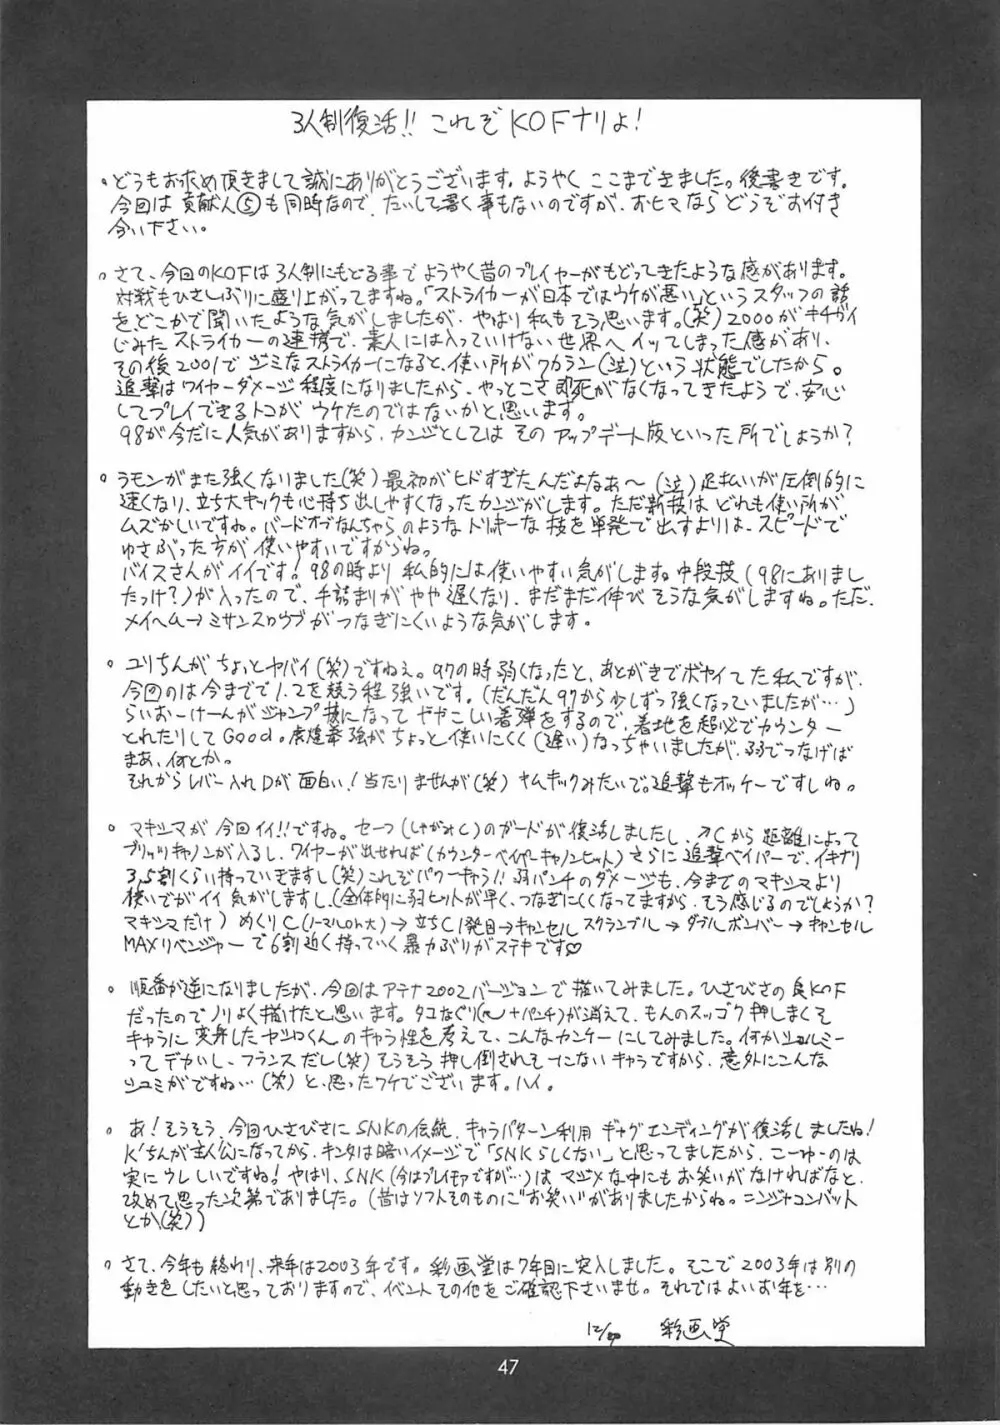 3人制復活!! これぞKOFナリよ!
。どうもお求め頂きまして誠にありがとうございます。ようやくここまできました。後書きです。
今回は貢献人⑤も同時なので、たいして書く事もないのですが、おヒマならどうぞお付き
合い下さい。
。さて、今回のKOFは3人制にもどる事でようやく昔のプレイヤーがもどってきたような感があります。
対戦もひさしぶりに盛り上がってますね。「ストライカーが日本ではウケが悪い」というスタッフの話
を、どこかで聞いたような気がしましたが、やはり私もそう思います。(笑)2000がキチガイ
じみたストライカーの連携で、素人には入っていけない世界へイッてしまった感があり、
その後2001でジミなストライカーになると、使い所がワカラン(泣)という状態でしたから。
追撃はワイヤーダメージ程度になりましたから、やっとこさ即死がなくなってきたようで、安心
してプレイできるトコがウケたのではないかと思います。
98が今だに人気がありますから、カンジとしてはそのアップデート版といった所でしょうか?
。ラモンがまた強くなりました(笑)最初がヒドすぎたんだよなぁ〜(泣)足払いが圧倒的に
速くなり、立ち大キックも心持ち出しやすくなったカンジがします。ただ新技はどれも使い所が
ムズかしいですね。バードオブなんちゃらのようなトリッキーな技を単発で出すよりは、スピードで
ゆさぶった方が使いやすいですからね。
バイスさんがイイです!98の時より私的には使いやすい気がします。中段技(98にありまし
たっけ?)が入ったので、手詰まりがやや遅くなり、まだまだ伸びそうな気がしますね。ただ、
メイヘム→ミサンスロウプがつなぎにくいような気がします。
。ユリちんがちょっとヤバイ(笑)ですねぇ。97の時弱くなったと、あとがきでボヤイてた私ですが、
今回のは今までで1.2を競う程強いです。(だんだん97から少しずつ強くなっていましたが…)
らいおーけーんがジャンプ技になってややこしい着弾をするので、着地を超必でカウンター
とれたりしてGood。虎煌拳強がちょっと使いにくく(遅い)なっちゃいましたが、弱でつなげば
まあ、何とか。
それからレバー入れDが面白い!当たりませんが(笑)キムキックみたいで。追撃もオッケーですしね。
。マキシマが今回イイ!!ですね。せーつ(しゃがみC)のガードが復活しましたし、↗Cから距離によって
ブリッツキャノンが入るし、ワイヤーが出せれば(カウンターベイパーキャノンヒット)さらに追撃ベイパーで、イキナリ
3,5割くらい持っていきますし(笑)これぞパワーキャラ!!弱パンチのダメージも、今までのマキシマより
使いでがイイ気がしますし、(全体的に弱ヒットが早く、つなぎにくくなってますから、そう感じるのでしょうか?
マキシマだけ)めくりC(ノーマルorht大)→立ちC1発目→キャンセルスクランブル→ダブルボンバー→キャンセル
MAXリベンジャーで6割近く持っていく暴力ぶりがステキです♡
。順番が逆になりましたが、今回はアテナ2002バージョンで描いてみました。ひさびさの良KOF
だったのでノリよく描けたと思います。タコなぐり(+パンチ)が消えて、もんのスッゴク押しまくる
キャラに変身したヤシロくんのキャラ性を考えて、こんなカンケーにしてみました。何かシェルミー
ってデカいし、フランスだし(笑)そうそう押し倒されそーにないキャラですから、意外にこんな
シュミがですね…(笑)と、思ったワケでございます。ハイ。
。あ!そうそう、今回ひさびさにSNKの伝統、キャラパターン利用ギャグエンディングが復活しましたね!
K'ちんが主人公になってから、キンタは暗いイメージで「SNKらしくない」と思ってましたから、こーゆーのは
実にウレしいですね!やはり、SNK(今はプレイモアですが…)はマジメな中にもお笑いがなければなと、
改めて思った次第でありました。(昔はソフトそのものに“お笑い”がありましたからね。ニンジャコンバット
とか(笑))
。さて、今年も終わり、来年は2003年です。彩画堂は7年目に突入しました。そこで2003年は別の
動きをしたいと思っておりますので、イベントその他をご確認下さいませ。それではよいお年を…
12/ 彩画堂
47